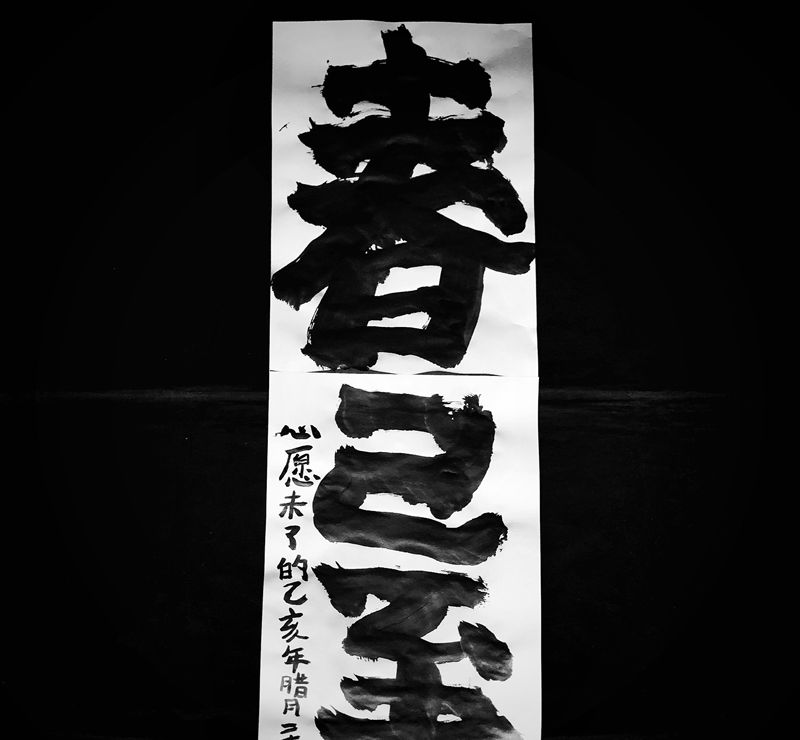 春已至
心愿未了的乙亥年腊月二